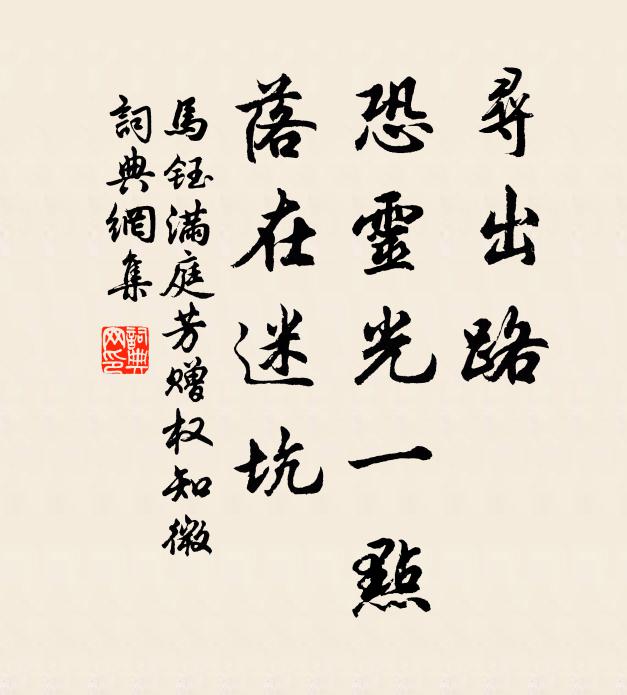 尋出路
恐靈光一點
落在迷坑
馬鈺滿庭芳赠权知微
詞典網集
詞典網印